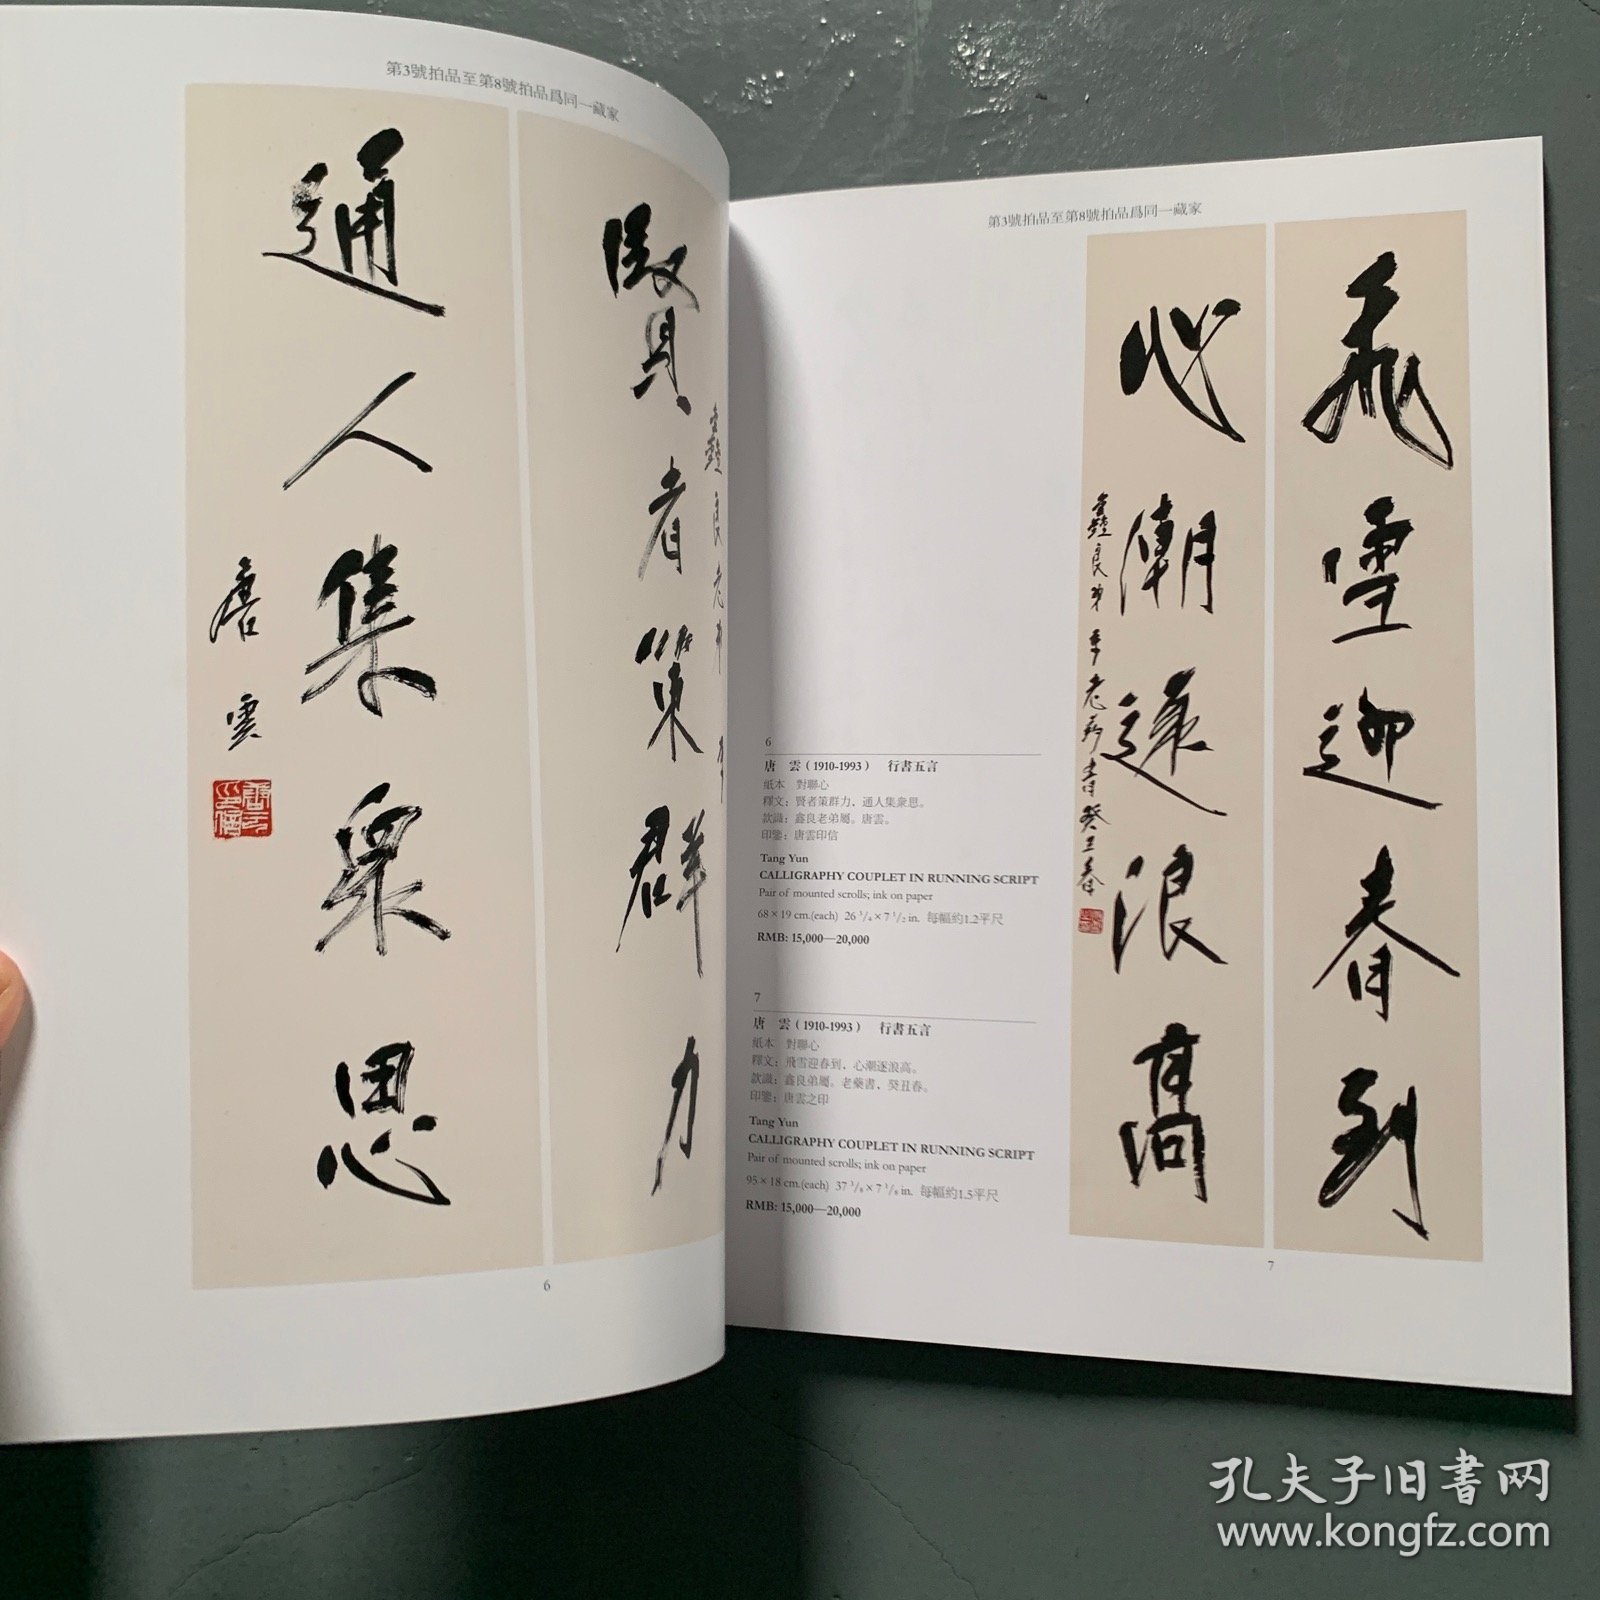 第3號拍品至第8號拍品爲同一藏家
賢者策群力
鑫良老弟屬
通人集衆思
唐雲
6
第3號拍品至第8號拍品爲同一藏家
飛雪迎春到
心潮逐浪高
鑫良弟屬老藥書癸丑春
6
唐　雲（1910-1993）　行書五言
紙本　對聯心
釋文：賢者策群力，通人集衆思。
款識：鑫良老弟屬。唐雲。
印鑒：唐雲印信
Tang Yun
CALLIGRAPHY COUPLET IN RUNNING SCRIPT
Pair of mounted scrolls; ink on paper
68×19 cm.(each)  26 3/4×7 1/2 in.  每幅約1.2平尺
RMB: 15,000—20,000
7
唐　雲（1910-1993）　行書五言
紙本　對聯心
釋文：飛雪迎春到，心潮逐浪高。
款識：鑫良弟屬。老藥書，癸丑春。
印鑒：唐雲之印
Tang Yun
CALLIGRAPHY COUPLET IN RUNNING SCRIPT
Pair of mounted scrolls; ink on paper
95×18 cm.(each)  37 3/8×7 1/8 in.  每幅約1.5平尺
RMB: 15,000—20,000
7
孔夫子旧书网
www.kongfz.com